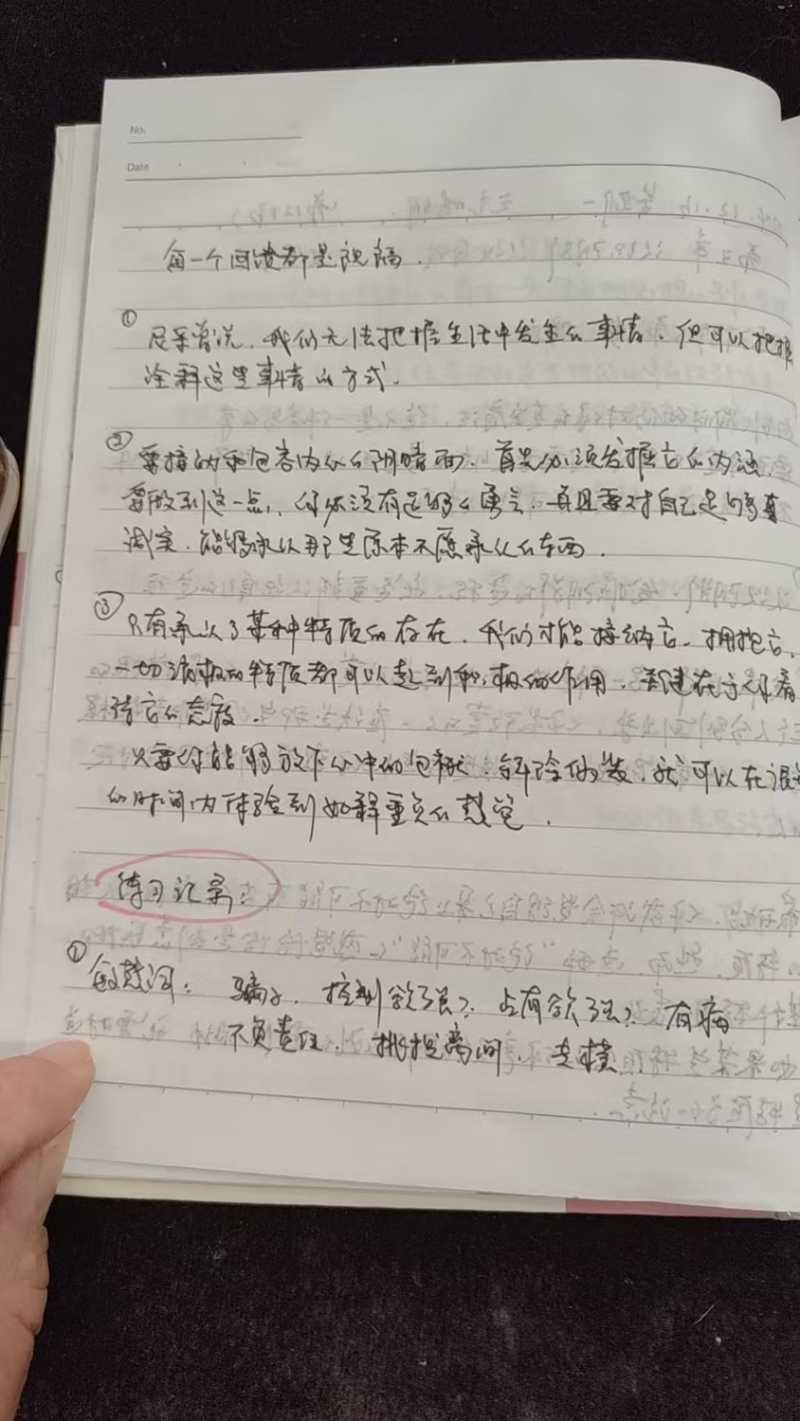 No.
Date
每一个回馈都是祝福.
① 尼采曾说.我们无法把握生活中发生的事情.但可以把握
诠释这些事情的方式.
② 要接纳和包容内心的阴暗面.首先必须发掘它的内涵.
要做到这一点,你必须有足够的勇气.并且要对自己足够真
诚实.能够承认那些原本不愿承认的东西.
③ 只有承认了某种特质的存在.我们才能接纳它.拥抱它.
一切消极的特质都可以起到积极的作用.关键在于你看
待它的态度.
只要你能够放下心中的包袱.解除伪装.就可以在很短
的时间内体验到如释重负的感觉.
练习记录:
① 敏感词: 骗子. 控制欲强? 占有欲强? 有病
不负责任. 挑拨离间.